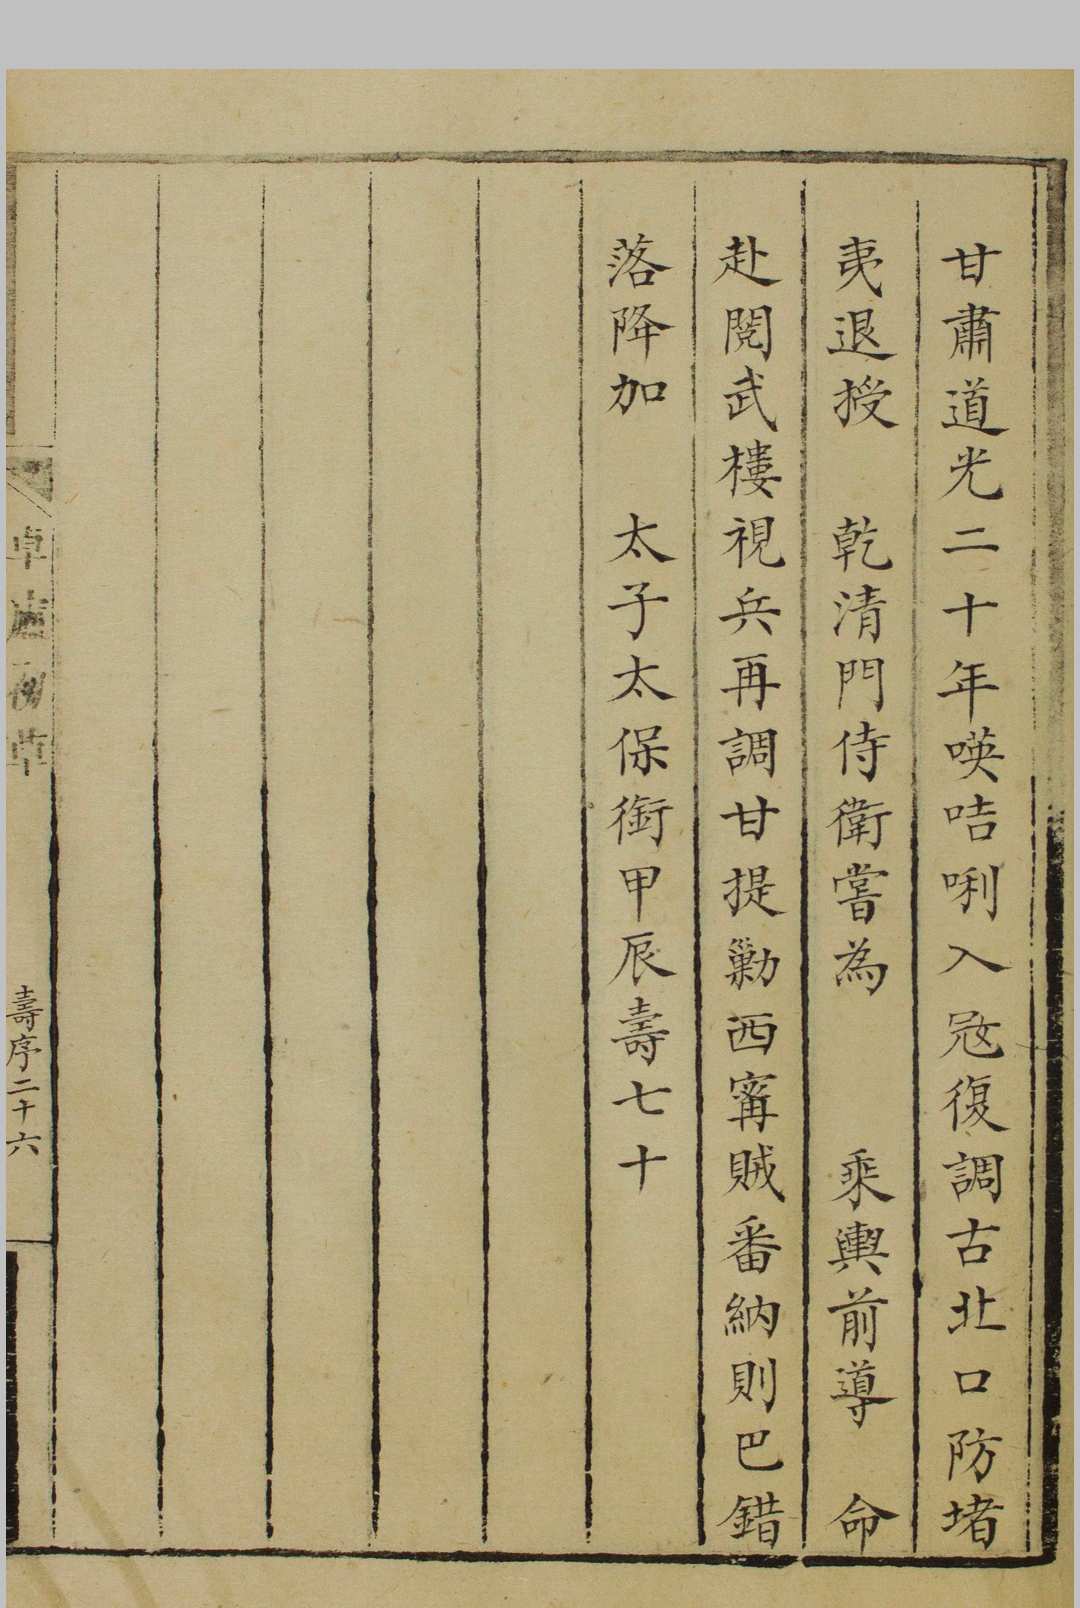 甘肅道光二十年暎咭唎入宼復調古北口防堵
夷退授 乾清門侍衛嘗為 乘輿前導 命
赴閱武樓視兵再調甘提勦西甯賊番納則巴錯
落降加 太子太保銜甲辰壽七十
壽序二十六